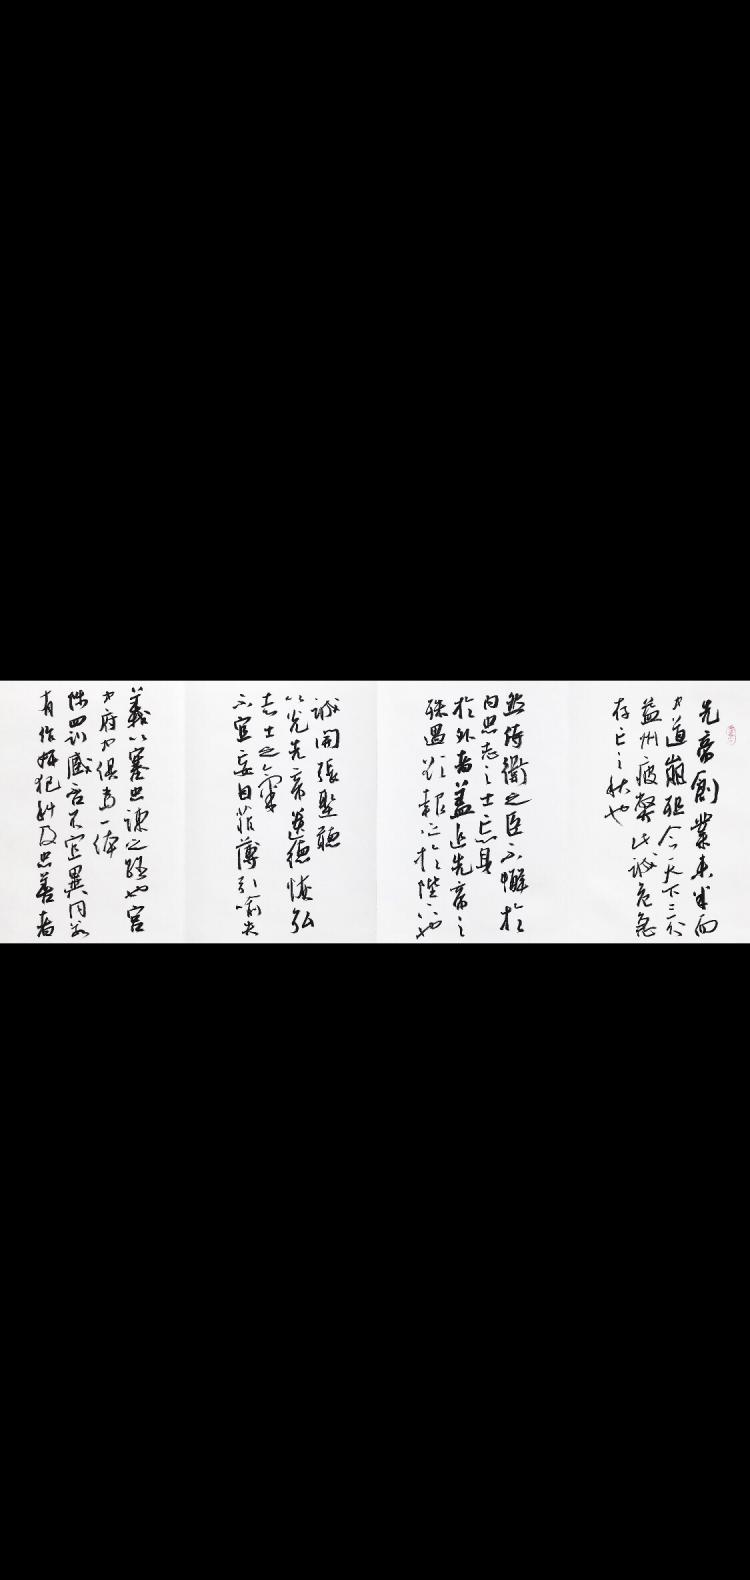 先帝創業未半而
中道崩殂今天下三分
益州疲弊此誠危急
存亡之秋也
然侍衛之臣不懈於
内忠志之士忘身
於外者蓋追先帝之
殊遇欲報之於陛下也
誠開張聖聽
以光先帝遺德恢弘
志士之氣
不宜妄自菲薄引喻失
義以塞忠諫之路也宮
中府中俱為一体
陟罰臧否不宜異同若
有作奸犯科及忠善者